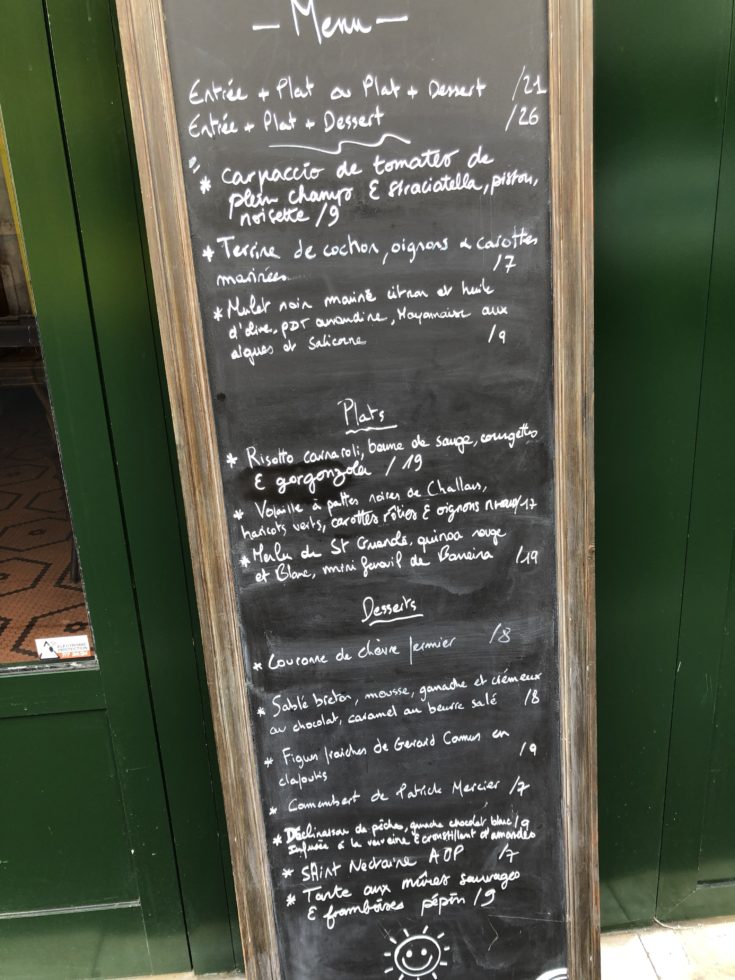 - Menu -
Entrée + Plat ou Plat + Dessert /21
Entrée + Plat + Dessert /26
* Carpaccio de tomates de
plein champs & straciatella, pistou,
noisette /9
* Terrine de cochon, oignons & carottes
marinées /7
* Mulet noir mariné citron et huile
d'olive, PDT amandine, Mayonnaise aux
algues et Salicorne /9
Plats
* Risotto carnaroli, beurre de sauge, courgettes
& gorgonzola /19
* Volaille à pattes noires de Challans,
haricots verts, carottes rôties & oignons /17
* Merlu de St quinoa rouge
et Blanc, mini fenouil de /19
Desserts
* Couronne de chèvre fermier /8
* Sablé breton, mousse, ganache et crémeux
au chocolat, caramel au beurre salé /8
* Figues fraiches de Gerard Comus en
clafoutis /9
* Camembert de Patrick Mercier /7
* Déclinaison de pêches, ganache chocolat blanc /9
infusée à la verveine & croustillant d'amandes
* SAint Nectaire AOP /7
* Tarte aux mûres sauvages
& framboises pépin /9